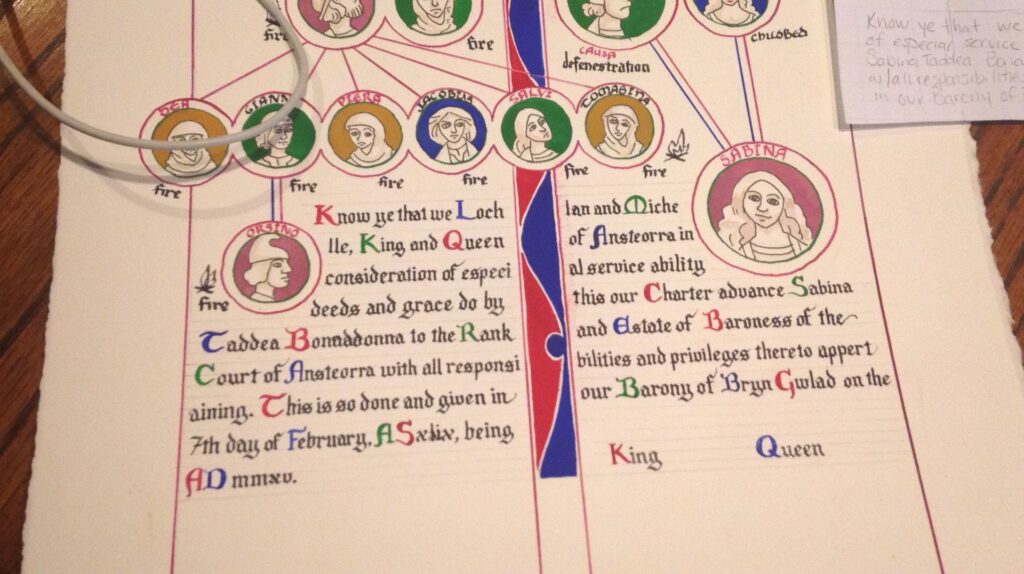 fire
fire
causa
defenestration
childbed
GIANN
SALVI
SABINA
fire
fire
fire
fire
fire
fire
ORSINO
fire
Know ye that we Loch lan and Miche
lle, King and Queen of Ansteorra in
consideration of especi al service ability
deeds and grace do by this our Charter advance Sabina
Taddea Bonnadonna to the Rank and Estate of Baroness of the
Court of Ansteorra with all responsi bilities and privileges thereto appert
aining. This is so done and given in our Barony of Bryn Gwlad on the
7th day of February, ASxlix, being
AD mmxv.
King Queen
Know ye that we
of especial service
Sabina Taddea
w/all responsibilitie
in our Barony of